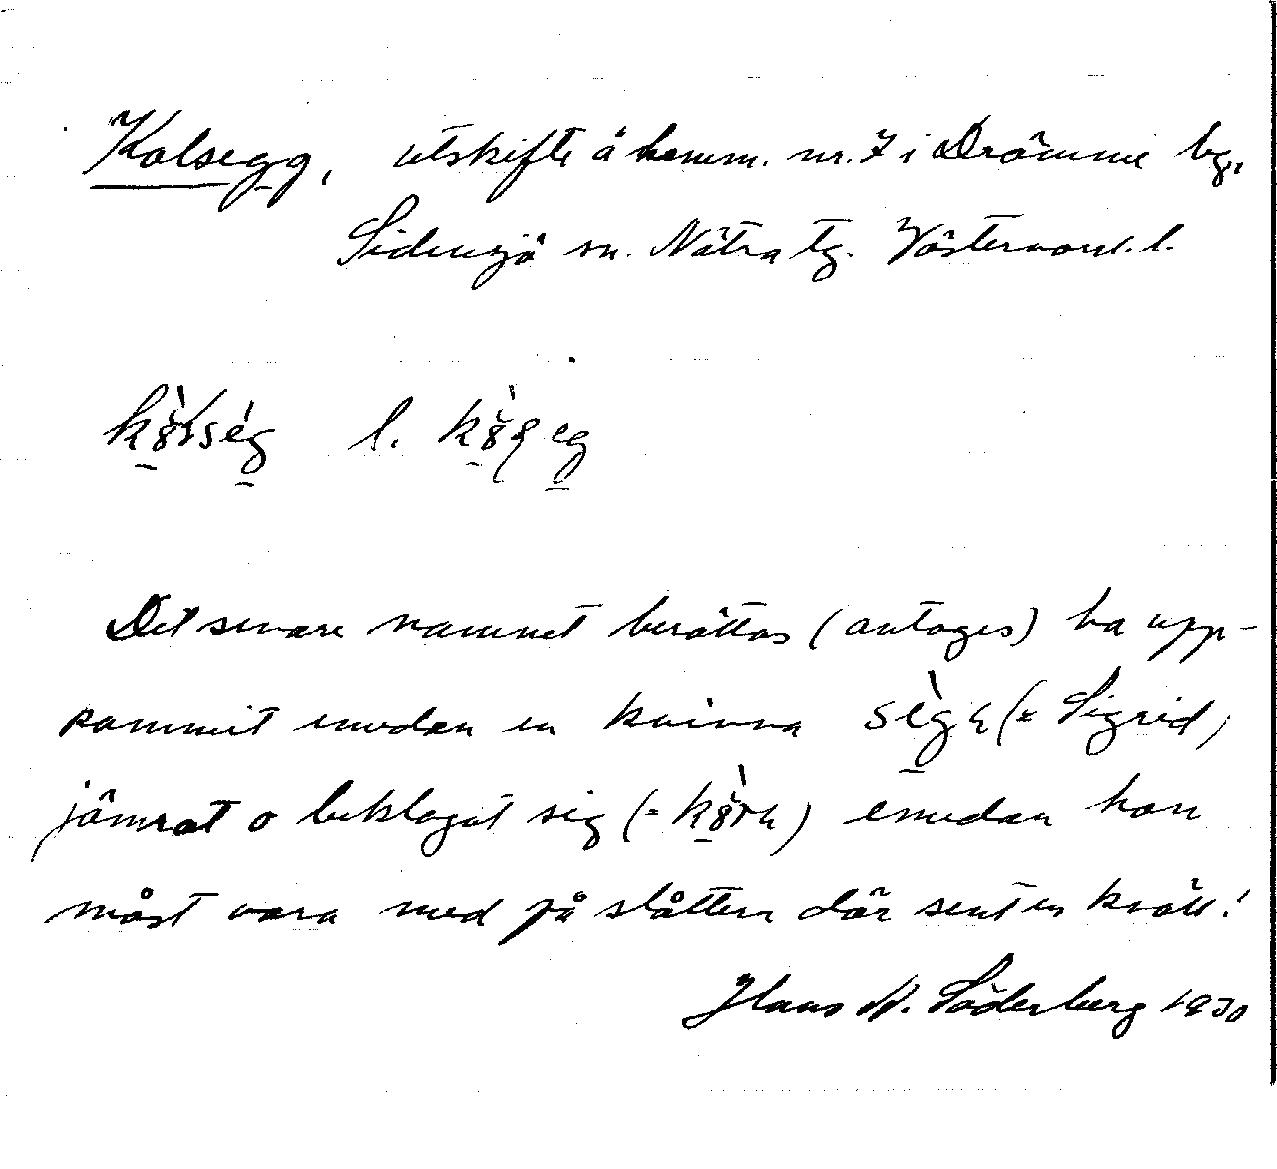 Kolsegg, utskifte å hemm. nr. 7 i Drömme by,
Sidensjö sn. Nätra tg. Västernorrl. l.
l.
Det senare namnet berättas (antages) ha upp-
kommit emedan en kvinna (= Sigrid)
jämrat o beklagat sig emedan hon
måst vara med på slåttern där sent en kväll!
Hans W. Söderberg 1930